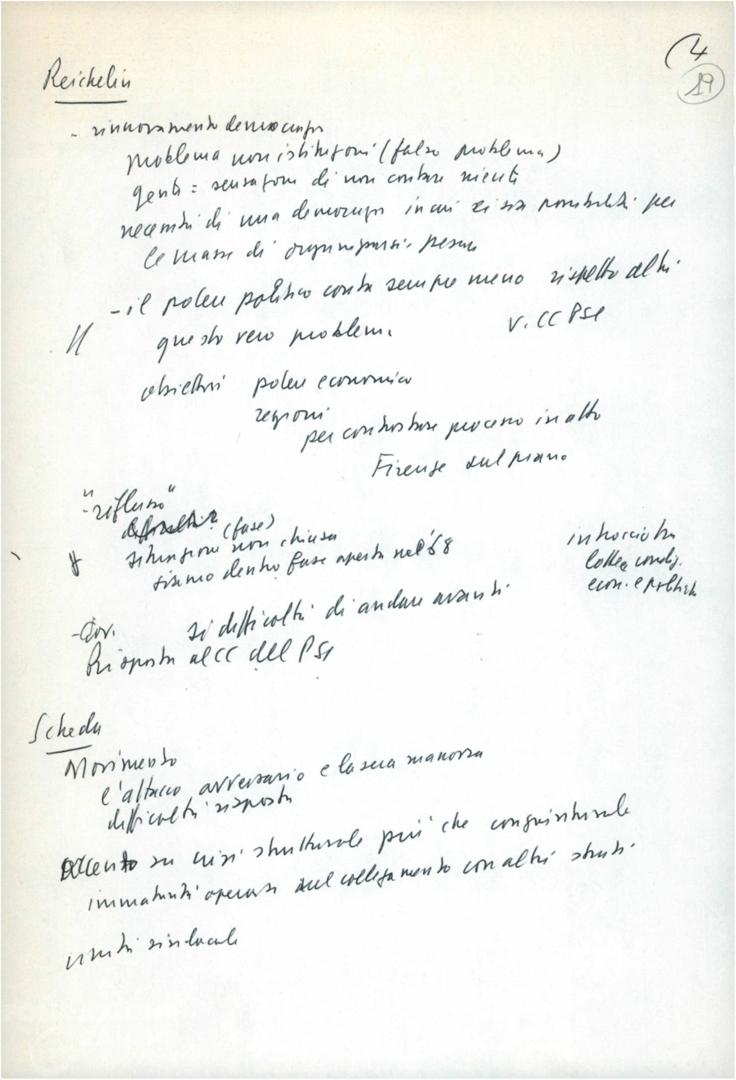 4
19
Reichelin
- rinnovamento democrazia
problema non istituzioni (falso problema)
gente = sensazione di non contare niente
necessità di una democrazia in cui ci sia possibilità per
le masse di organizzarsi, pesare
- il potere politico conta sempre meno rispetto altri
questo vero problema
v. CC PSI
obiettivi potere economico
regioni
per contrastare processo in atto
Firenze sul piano
- "riflusso"
(fase)
situazione non chiusa
siamo dentro fase aperta nel '68
intreccio tra
lotta condiz.
econ. e politich
- Gov. si difficoltà di andare avanti
Risposta al CC del PSI
Scheda
Movimento
l'attacco avversario e la sua manovra
difficoltà risposta
accento su crisi strutturale più che congiunturale
immaturità operaia sul collegamento con altri strati
unità sindacale